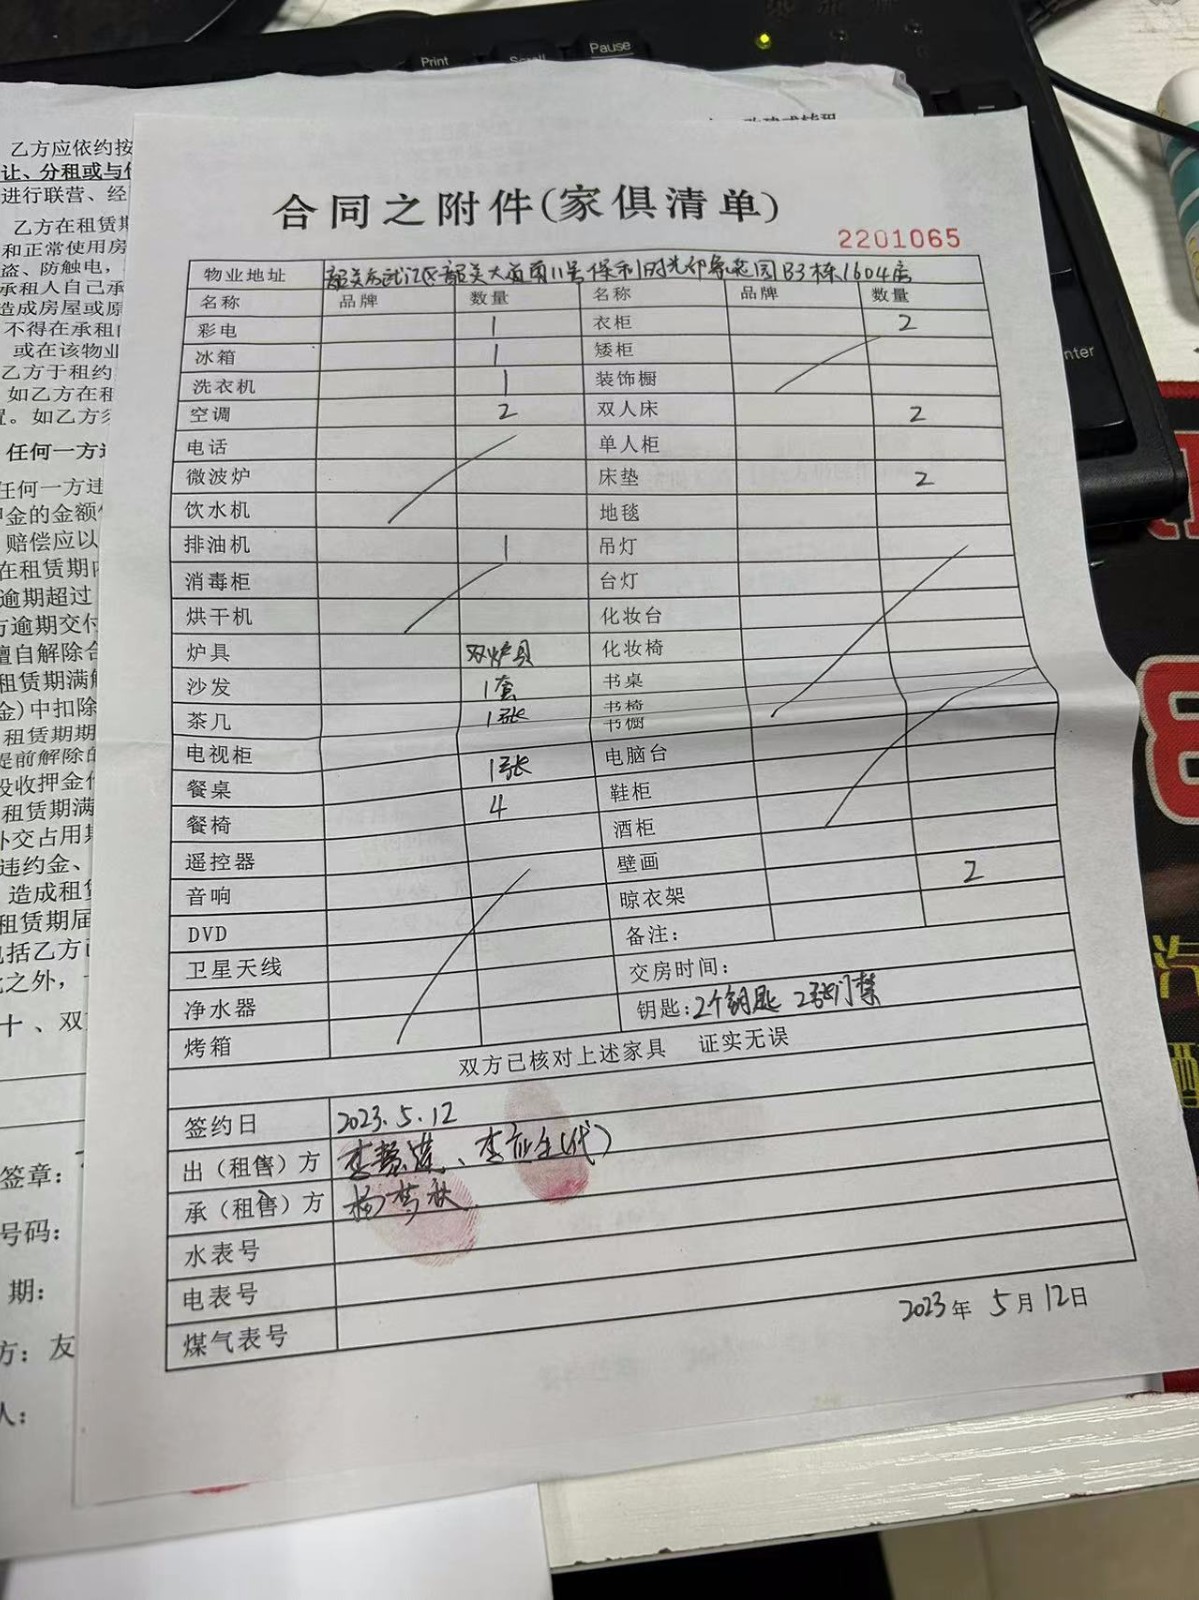 Print
Scroll
Pause
nter
乙方应依约按
让、分租或与
进行联营、经
乙方在租赁期
和正常使用房
盗、防触电,
承租人自己承
造成房屋或原
不得在承租
或在该物业
乙方于租约
如乙方在租
置。如乙方
任何一方违
任何一方违
押金的金额
赔偿应以
在租赁期内
逾期超过
方逾期交付
擅自解除合
租赁期满
金)中扣除
租赁期期
提前解除的
没收押金
租赁期满
外交占用期
违约金、
造成租赁
租赁期届
包括乙方
此之外,
十、双方
签章:
号码:
期:
方:友
人:
合同之附件(家俱清单)
2201065
物业地址 韶关市武江区韶关大道南11号保利时光印象花园B3栋1604房
名称 品牌 数量 名称 品牌 数量
彩电 1 衣柜 2
冰箱 1 矮柜
洗衣机 1 装饰橱
空调 2 双人床 2
电话 单人柜
微波炉 床垫 2
饮水机 地毯
排油机 1 吊灯
消毒柜 台灯
烘干机 化妆台
炉具 双炉具 化妆椅
沙发 1套 书桌
茶几 1张 书椅
书橱
电视柜 电脑台
餐桌 1张 鞋柜
餐椅 4 酒柜
遥控器 壁画
音响 晾衣架 2
DVD 备注:
卫星天线 交房时间:
净水器 钥匙:2个钥匙 2张门禁
烤箱
双方已核对上述家具 证实无误
签约日 2023.5.12
出(租售)方 (代)
承(租售)方 杨梦秋
水表号
电表号
煤气表号
2023年5月12日